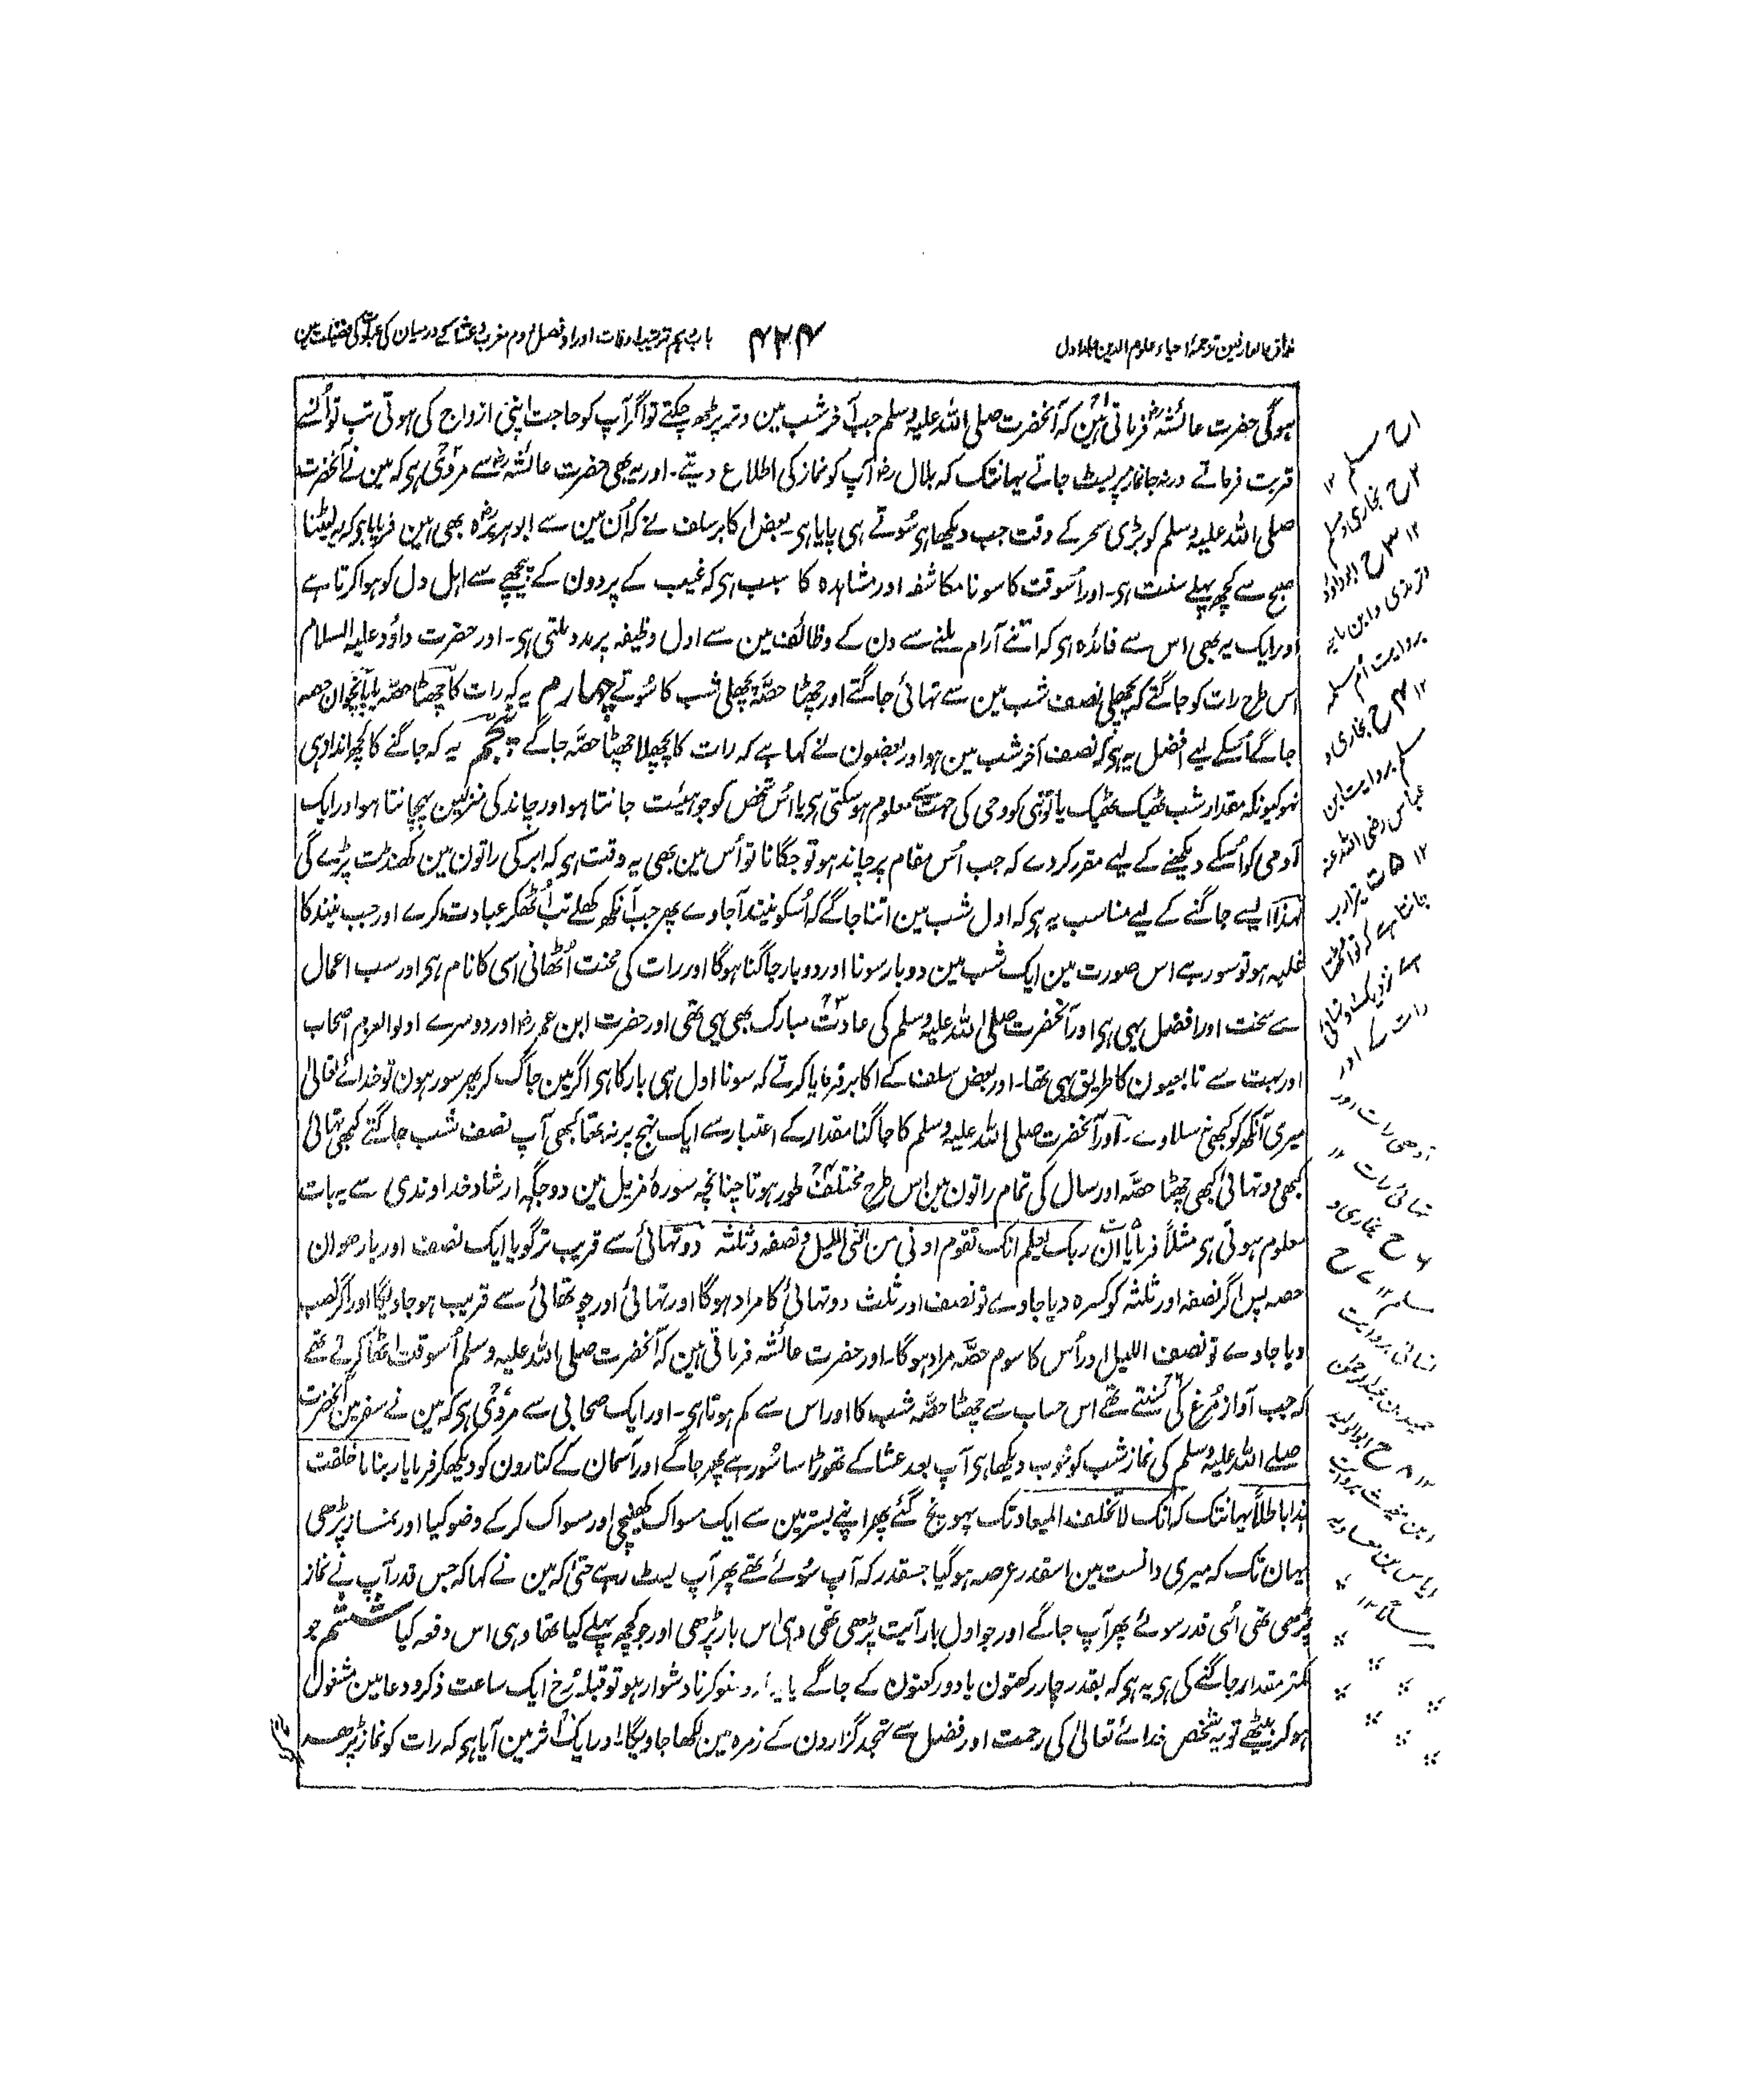 مذاق العارفین ترجمۂ احیاء علوم الدین جلد اول
۴۲۴
باب دہم ترتیب اوقات اوراد فصل دوم مغرب و عشا کے درمیان کی عبادت کی فضیلت مین
ہوگی حضرت عائشہ رض فرماتی ہین کہ آنحضرت صلی اللہ علیہ وسلم جب آخر شب مین وتر پڑھ چکتے تو اگر آپ کو حاجت اپنی ازواج کی ہوتی تب تو اُنسے
قربت فرماتے ورنہ جانماز پر لیٹ جاتے یہانتک کہ بلال رض آپ کو نماز کی اطلاع دیتے۔ اور یہ بھی حضرت عائشہ رض سے مروی ہی کہ مین نے آنحضرت
صلی اللہ علیہ وسلم کو بڑی سحر کے وقت جب دیکھا ہی سُوتے ہی پایا ہی۔ بعض اکابر سلف نے کہ اُن مین سے ابوہریرہ رض بھی ہین فرمایا ہو کہ یہ لیٹنا
صبح سے کچھ پہلے سنت ہی۔ اور اُسوقت کا سونا مکاشفہ اور مشاہدہ کا سبب ہی کہ غیب کے پردون کے پیچھے سے اہل دل کو ہوا کرتا ہے
اور ایک یہ بھی اس سے فائدہ ہی کہ اتنے آرام ملنے سے دن کے وظائف مین سے اول وظیفہ پر مدد ملتی ہی۔ اور حضرت داؤد علیہ السلام
اس طرح رات کو جاگتے کہ پچھلی نصف شب مین سے تہائی جاگتے اور چھٹا حصّہ پچھلی شب کا سُوتے چہارم یہ کہ رات کا چھٹا حصّہ یا پانچوان حصہ
جاگے اُسکے لیے افضل یہ ہی کہ نصف آخر شب مین ہو اور بعضون نے کہا ہے کہ رات کا پچھلا چھٹا حصّہ جاگے پنجم یہ کہ جاگنے کا کچھ اندازہی
نہو کیونکہ مقدار شب ٹھیک ٹھیک یا تو نبی کو وحی کی جہت سے معلوم ہو سکتی ہی یا اُس شخص کو جو ہیئت جانتا ہو اور چاند کی منزلین پہچانتا ہو اور ایک
آدمی کو اُسکے دیکھنے کے لیے مقرر کردے کہ جب اُس مقام پر چاند ہو تو جگانا تو اُس مین بھی یہ دقت ہی کہ ابر کی راتون مین کھنڈت پڑے گی
لہذا ایسے جاگنے کے لیے مناسب یہ ہی کہ اول شب مین اتنا جاگے کہ اُسکو نیند آجاوے پھر جب آنکھ کھلے تب اُٹھکر عبادت کرے اور جب نیند کا
غلبہ ہو تو سو رہے اس صورت مین ایک شب مین دوبار سونا اور دوبار جاگنا ہوگا اور رات کی محنت اُٹھانی اسی کا نام ہی اور سب اعمال
سے سخت اور افضل یہی ہی اور آنحضرت صلی اللہ علیہ وسلم کی عادت مبارک بھی یہی تھی اور حضرت ابن عمر رض اور دوسرے اولوالعزم اصحاب
اور بہت سے تابعیون کا طریق یہی تھا۔ اور بعض سلف کے اکابر فرمایا کرتے کہ سونا اول ہی بار کا ہی اگر مین جاگ کر پھر سو رہون تو خدائے تعالیٰ
میری آنکھ کو کبھی نہ سلاوے۔ اور آنحضرت صلی اللہ علیہ وسلم کا جاگنا مقدار کے اعتبار سے ایک نہج پر نہ تھا کبھی آپ نصف شب جاگتے کبھی تہائی
کبھی دو تہائی کبھی چھٹا حصّہ اور سال کی تمام راتون مین اس طرح مختلف طور ہوتا چنانچہ سورۂ مزمل مین دو جگہ ارشاد خداوندی سے یہ بات
معلوم ہوتی ہی مثلاً فرمایا ان ربک یعلم انک تقوم ادنی من ثلثی اللیل و نصفہ وثلثہ دو تہائی سے قریب تر گویا ایک نصف اور بارھوان
حصہ پس اگر نصفہ اور ثلثہ کو کسرہ دیا جاوے تو نصف اور ثلث دو تہائی کا مراد ہوگا اور تہائی اور چوتھائی سے قریب ہوجاویگا اور اگر نصب
دیا جاوے تو نصف اللیل اور اُس کا سوم حصّہ مراد ہوگا۔ اور حضرت عائشہ فرماتی ہین کہ آنحضرت صلی اللہ علیہ وسلم اُسوقت اُٹھا کرتے تھے
کہ جب آواز مُرغ کی سُنتے تھے اس حساب سے چھٹا حصّہ شب کا اور اس سے کم ہوتا ہی۔ اور ایک صحابی سے مروی ہی کہ مین نے سفر مین آنحضرت
صلے اللہ علیہ وسلم کی نماز شب کو خوب دیکھا ہی آپ بعد عشا کے تھوڑا سا سُو رہے پھر جاگے اور آسمان کے کنارون کو دیکھکر فرمایا ربنا ما خلقت
ہذا باطلاً یہانتک کہ انک لا تخلف المیعاد تک پہونچ گئے پھر اپنے بستر مین سے ایک مسواک کھینچی اور مسواک کرکے وضو کیا اور نماز پڑھی
یہان تک کہ میری دانست مین اسقدر عرصہ ہوگیا جسقدر کہ آپ سُوئے تھے پھر آپ لیٹ رہے حتیٰ کہ مین نے کہا کہ جس قدر آپ نے نماز
پڑھی تھی اُسی قدر سوئے پھر آپ جاگے اور جو اول بار آیت پڑھی تھی وہی اس بار پڑھی اور جو کچھ پہلے کیا تھا وہی اس دفعہ کیا ششم جو
کمتر مقدار جاگنے کی ہو یہ ہو کہ بقدر چار رکعتون یا دو رکعتون کے جاگے یا وضو کرنا دشوار ہو تو قبلہ رُخ ایک ساعت ذکر و دعا مین مشغول
ہوکر بیٹھے تو یہ شخص خدائے تعالیٰ کی رحمت اور فضل سے تہجد گزارون کے زمرہ مین لکھا جاویگا اور ایک اثر مین آیا ہو کہ رات کو نماز پڑھ
۱ ح مسلم ۱۲
۲ ح بخاری و مسلم
۱۲ ۳ ح ابوداؤد
و ترمذی و ابن ماجہ
بروایت ام سلمہ
۱۲ ۴ ح بخاری و
مسلم بروایت ابن
عباس رضی اللہ عنہ
۱۲ ۵ ت تیرا رب
جانتا ہے کہ تو اٹھتا
ہے نزدیک دو تہائی
رات کے اور
آدھی رات اور
تہائی رات ۱۲
۶ ح بخاری و
مسلم ۱۲ ۷ ح
نسائی بروایت
حمید بن عبدالرحمٰن
۱۲ ۸ ح ابو الولید
بن مغیث بروایت
ایاس بن معاویہ
مرسلاً ۱۲